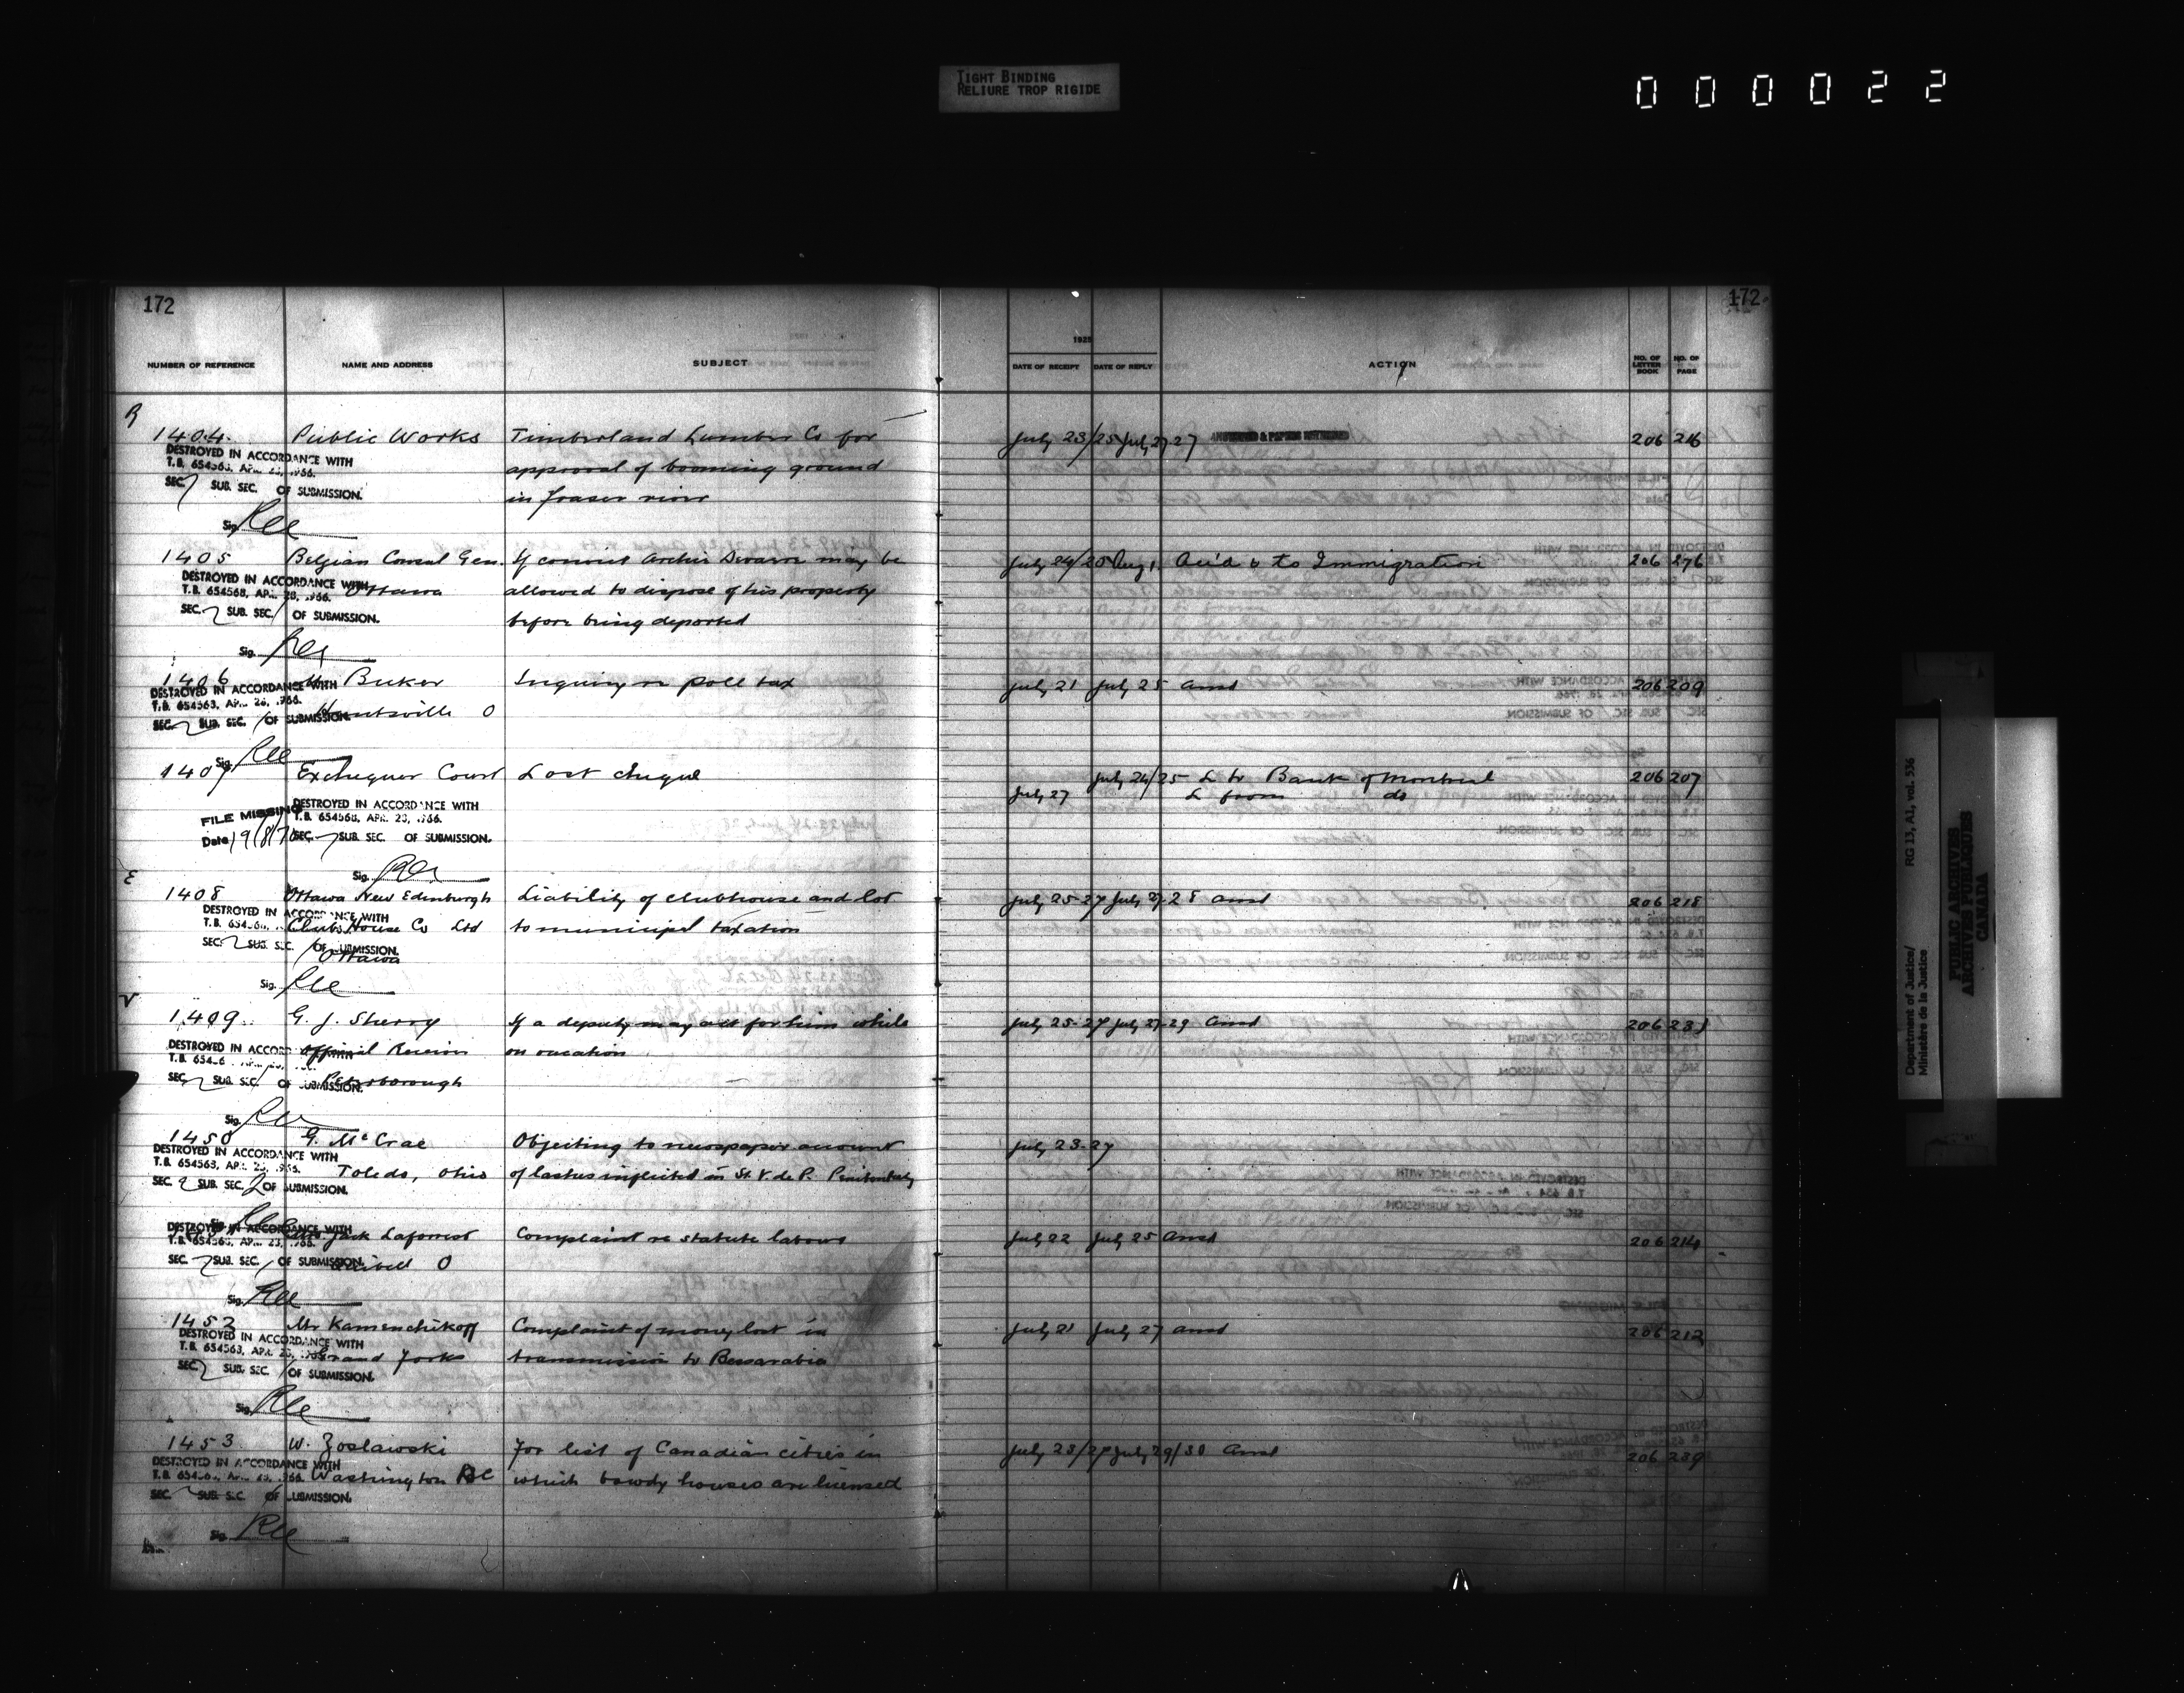 TIGHT BINDING
RELIURE TROP RIGIDE
0 0 0 0 2 2
172
NUMBER OF REFERENCE NAME AND ADDRESS SUBJECT
R
1404 Public Works Timberland Lumber Co for
DESTROYED IN ACCORDANCE WITH
T.B. 654563, APR. 28, 1966. approval of booming ground
SEC. SUB. SEC. OF SUBMISSION.
in Fraser river
Sig.
1405 Belgian Consul Gen. If convict may be
DESTROYED IN ACCORDANCE WITH
T.B. 654563, APR. 28, 1966. Ottawa allowed to dispose of his property
SEC. SUB. SEC. OF SUBMISSION.
before being deported
Sig.
1406 Buker Inquiry re poll tax
DESTROYED IN ACCORDANCE WITH
T.B. 654563, APR. 28, 1966.
Huntsville O
SEC. SUB. SEC. OF SUBMISSION.
Sig.
1407 Exchequer Court Lost cheque
FILE MISSING DESTROYED IN ACCORDANCE WITH
T.B. 654563, APR. 28, 1966.
Date SEC. SUB. SEC. OF SUBMISSION.
Sig.
E
1408 Ottawa New Edinburgh Liability of clubhouse and lot
DESTROYED IN ACCORDANCE WITH
Club House Co Ltd to municipal taxation
SEC. SUB. SEC. OF SUBMISSION.
Ottawa
Sig.
V
1409 G. J. Sherry If a deputy may act for him while
DESTROYED IN ACCORDANCE WITH
Official Receiver on vacation
SEC. SUB. SEC. OF SUBMISSION.
Peterborough
Sig.
1450 G. McCrae Objecting to newspaper account
DESTROYED IN ACCORDANCE WITH
T.B. 654563, APR. 28, 1966. Toledo, Ohio of lashes inflicted in St. V. de P. Penitentiary
SEC. 2 SUB. SEC. 2 OF SUBMISSION.
DESTROYED IN ACCORDANCE WITH
Jack Laforest Complaint re statute labour
SEC. SUB. SEC. OF SUBMISSION.
Sig.
1452 Mr Kamenchikoff Complaint of money lost in
DESTROYED IN ACCORDANCE WITH
T.B. 654563, APR. 28, 1966. Grand Forks transmission to Bessarabia
SEC. SUB. SEC. OF SUBMISSION.
Sig.
1453 W. Zoslawski For list of Canadian cities in
DESTROYED IN ACCORDANCE WITH
Washington DC which bawdy houses are licensed
SEC. SUB. SEC. OF SUBMISSION.
Sig.
172
1925
DATE OF RECEIPT DATE OF REPLY ACTION NO. OF LETTER BOOK NO. OF PAGE
July 23/25 July 27-27 ANSWERED & PAPERS RETURNED 206 216
July 24/25 Aug 1 Ack'd & to Immigration 206 276
July 21 July 25 Ansd 206 209
July 24/25 L to Bank of Montreal 206 207
July 27 L from do
July 25-27 July 27-28 Ansd 206 218
July 25-27 July 27-29 Ansd 206 231
July 23-27
July 22 July 25 Ansd 206 214
July 21 July 27 Ansd 206 212
July 23/27 July 29/30 Ansd 206 239
Department of Justice/ RG 13, A1, vol. 536
Ministère de la Justice
PUBLIC ARCHIVES
ARCHIVES PUBLIQUES
CANADA